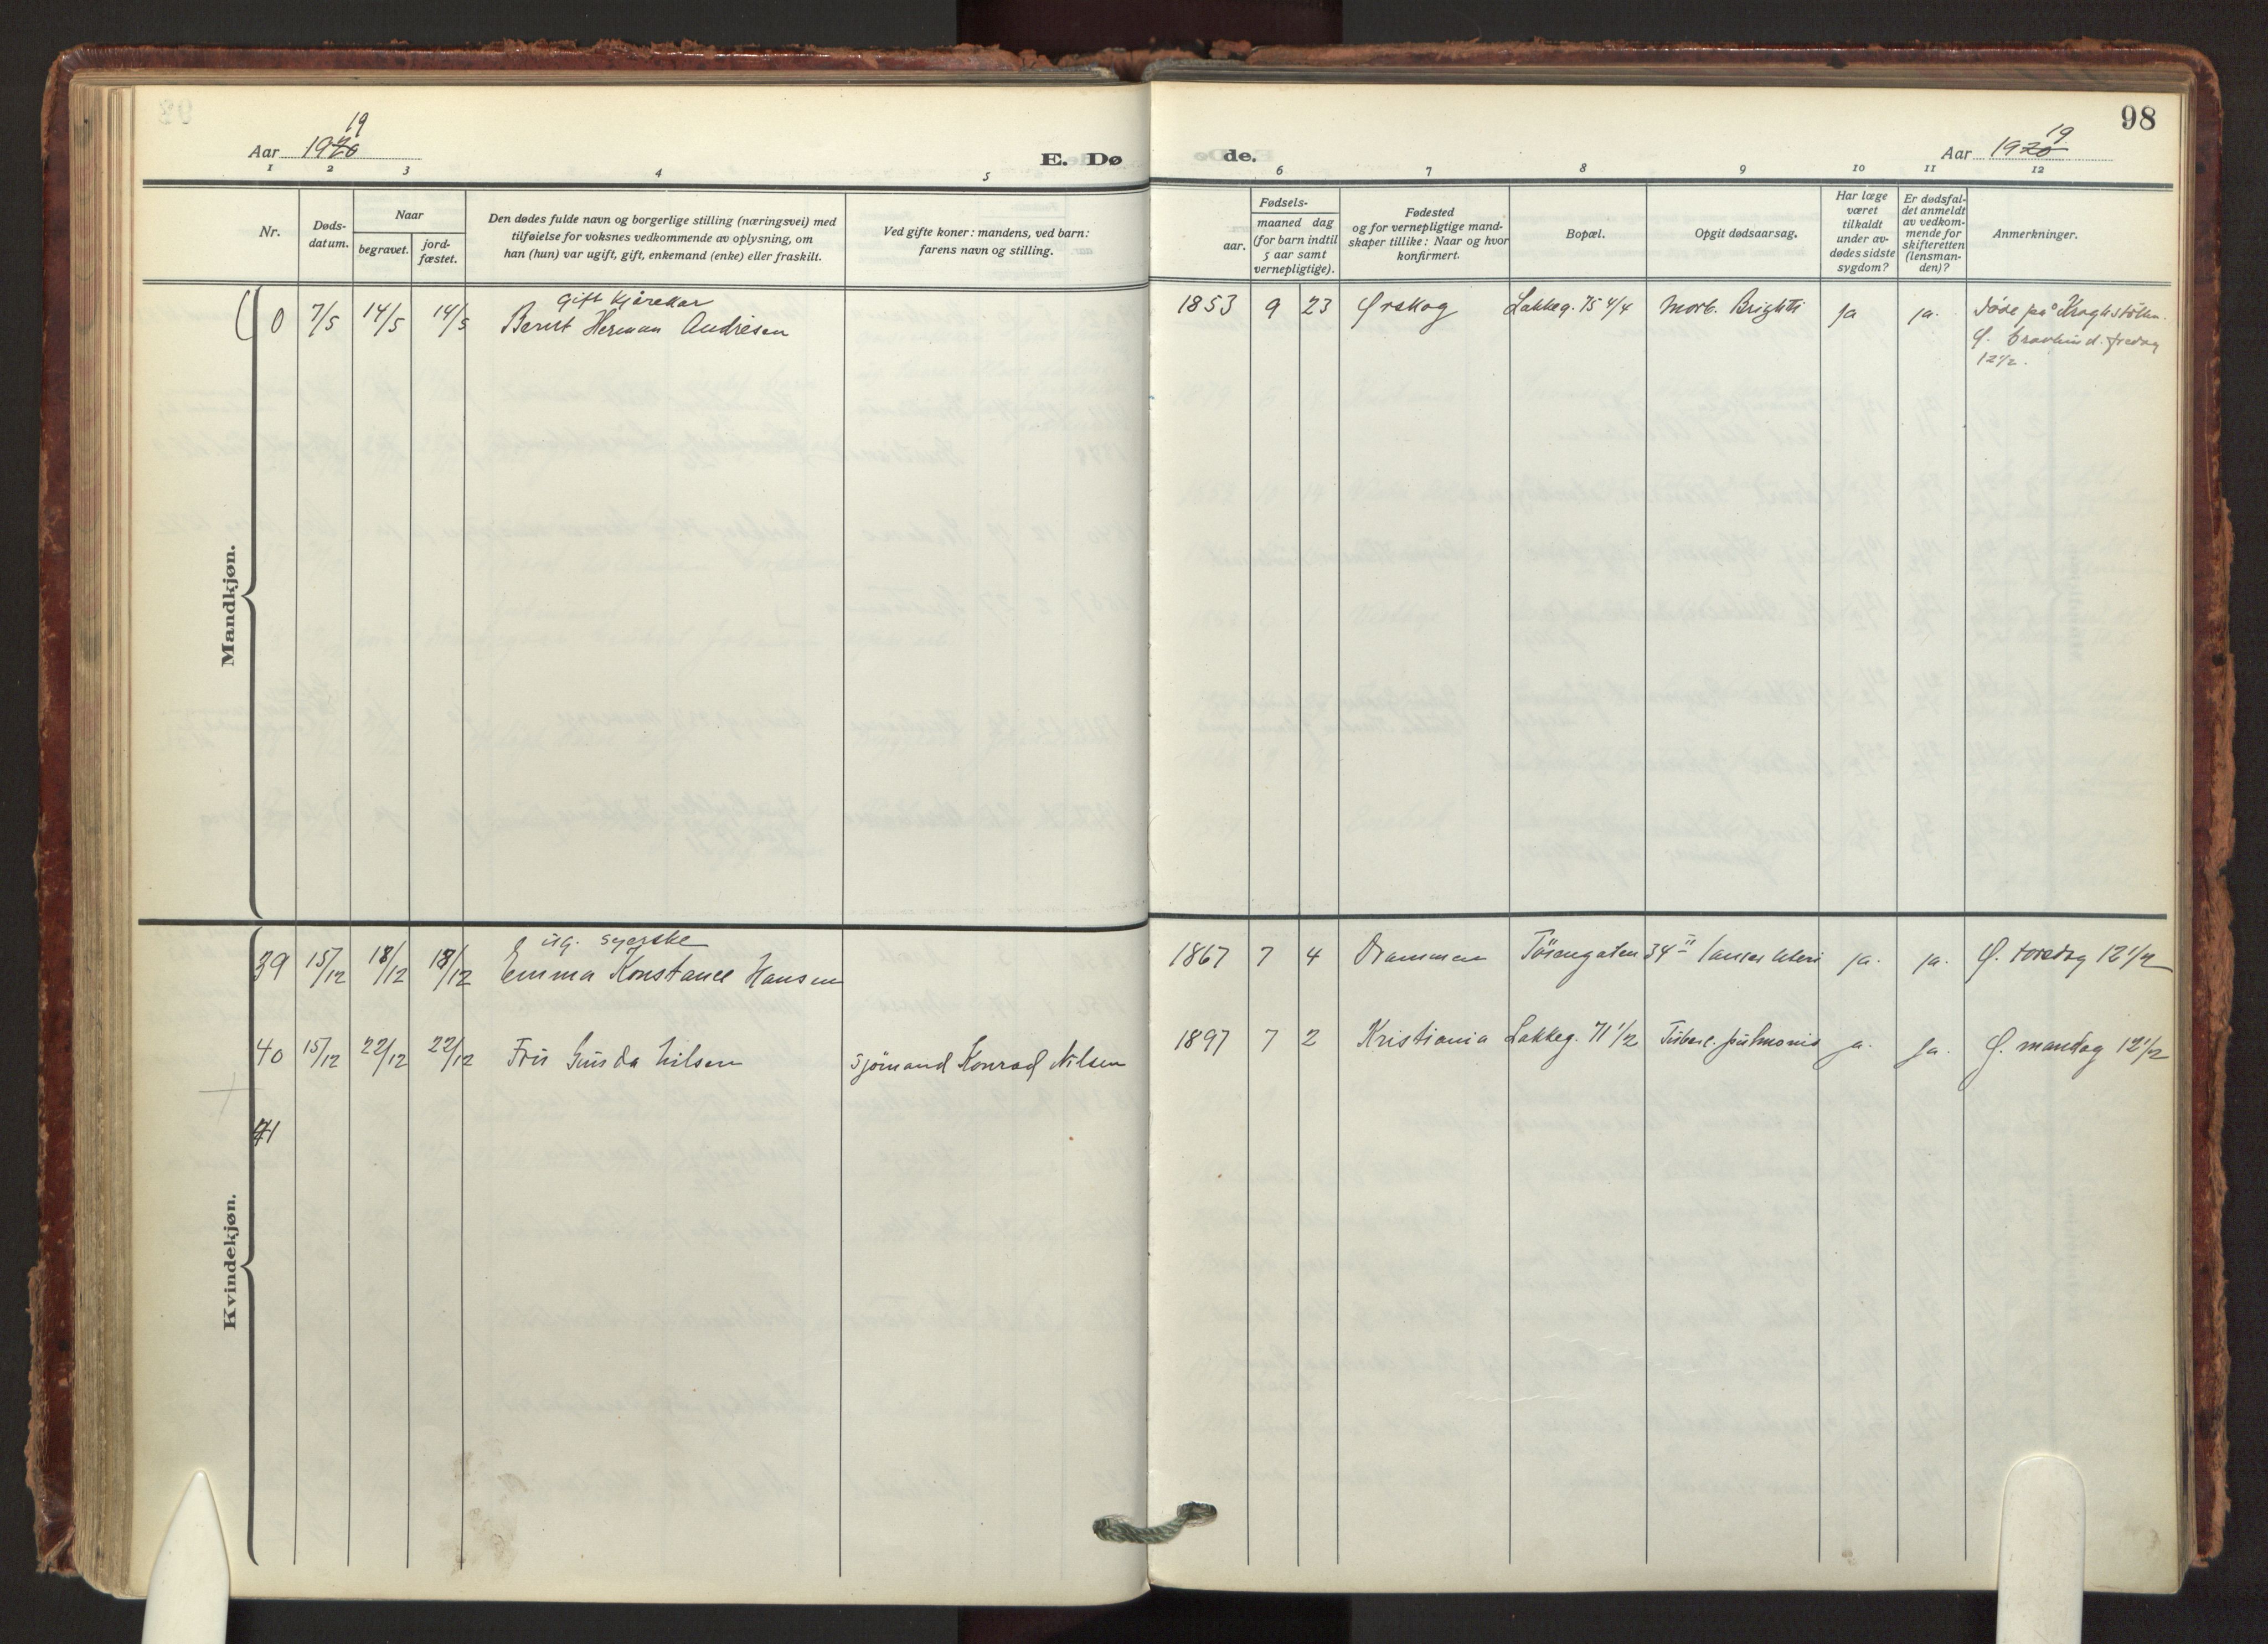 98
Aar 1920 19
E. Døde.
Aar 1920 19
1 2 3 4 5 6 7 8 9 10 11 12
Nr.
Døds-
datum.
Naar
begravet.
jord-
fæstet.
Den dødes fulde navn og borgerlige stilling (næringsvei) med
tilføielse for voksnes vedkommende av oplysning, om
han (hun) var ugift, gift, enkemand (enke) eller fraskilt.
Ved gifte koner: mandens, ved barn:
farens navn og stilling.
Fødsels-
aar.
maaned dag
(for barn indtil
5 aar samt
vernepligtige).
Fødested
og for vernepligtige mand-
skaper tillike: Naar og hvor
konfirmert.
Bopæl.
Opgit dødsaarsag.
Har læge
været
tilkaldt
under av-
dødes sidste
sygdom?
Er dødsfal-
det anmeldt
av vedkom-
mende for
skifteretten
(lensman-
den)?
Anmerkninger.
Mandkjøn.
gift kjørekar
0 7/5 14/5 14/5 Bernt Herman Andresen 1853 9 23 Ørskog Lakkeg. 75 4/4 Morb. Brightii ja ja. Døde på
Ø. fredag
12 1/2.
Kvindekjøn.
ug. syerske
39 15/12 18/12 18/12 Emma Konstance Hansen 1867 7 4 Drammen Tøiengaten 34 II Cancer uteri ja. ja. Ø. torsdag 12 1/2
40 15/12 22/12 22/12 Fru Nilsen Sjømand Konrad Nilsen 1897 7 2 Kristiania Lakkeg. 71 1/2 Tuberc. pulmonis ja. ja. Ø. mandag 12 1/2
41